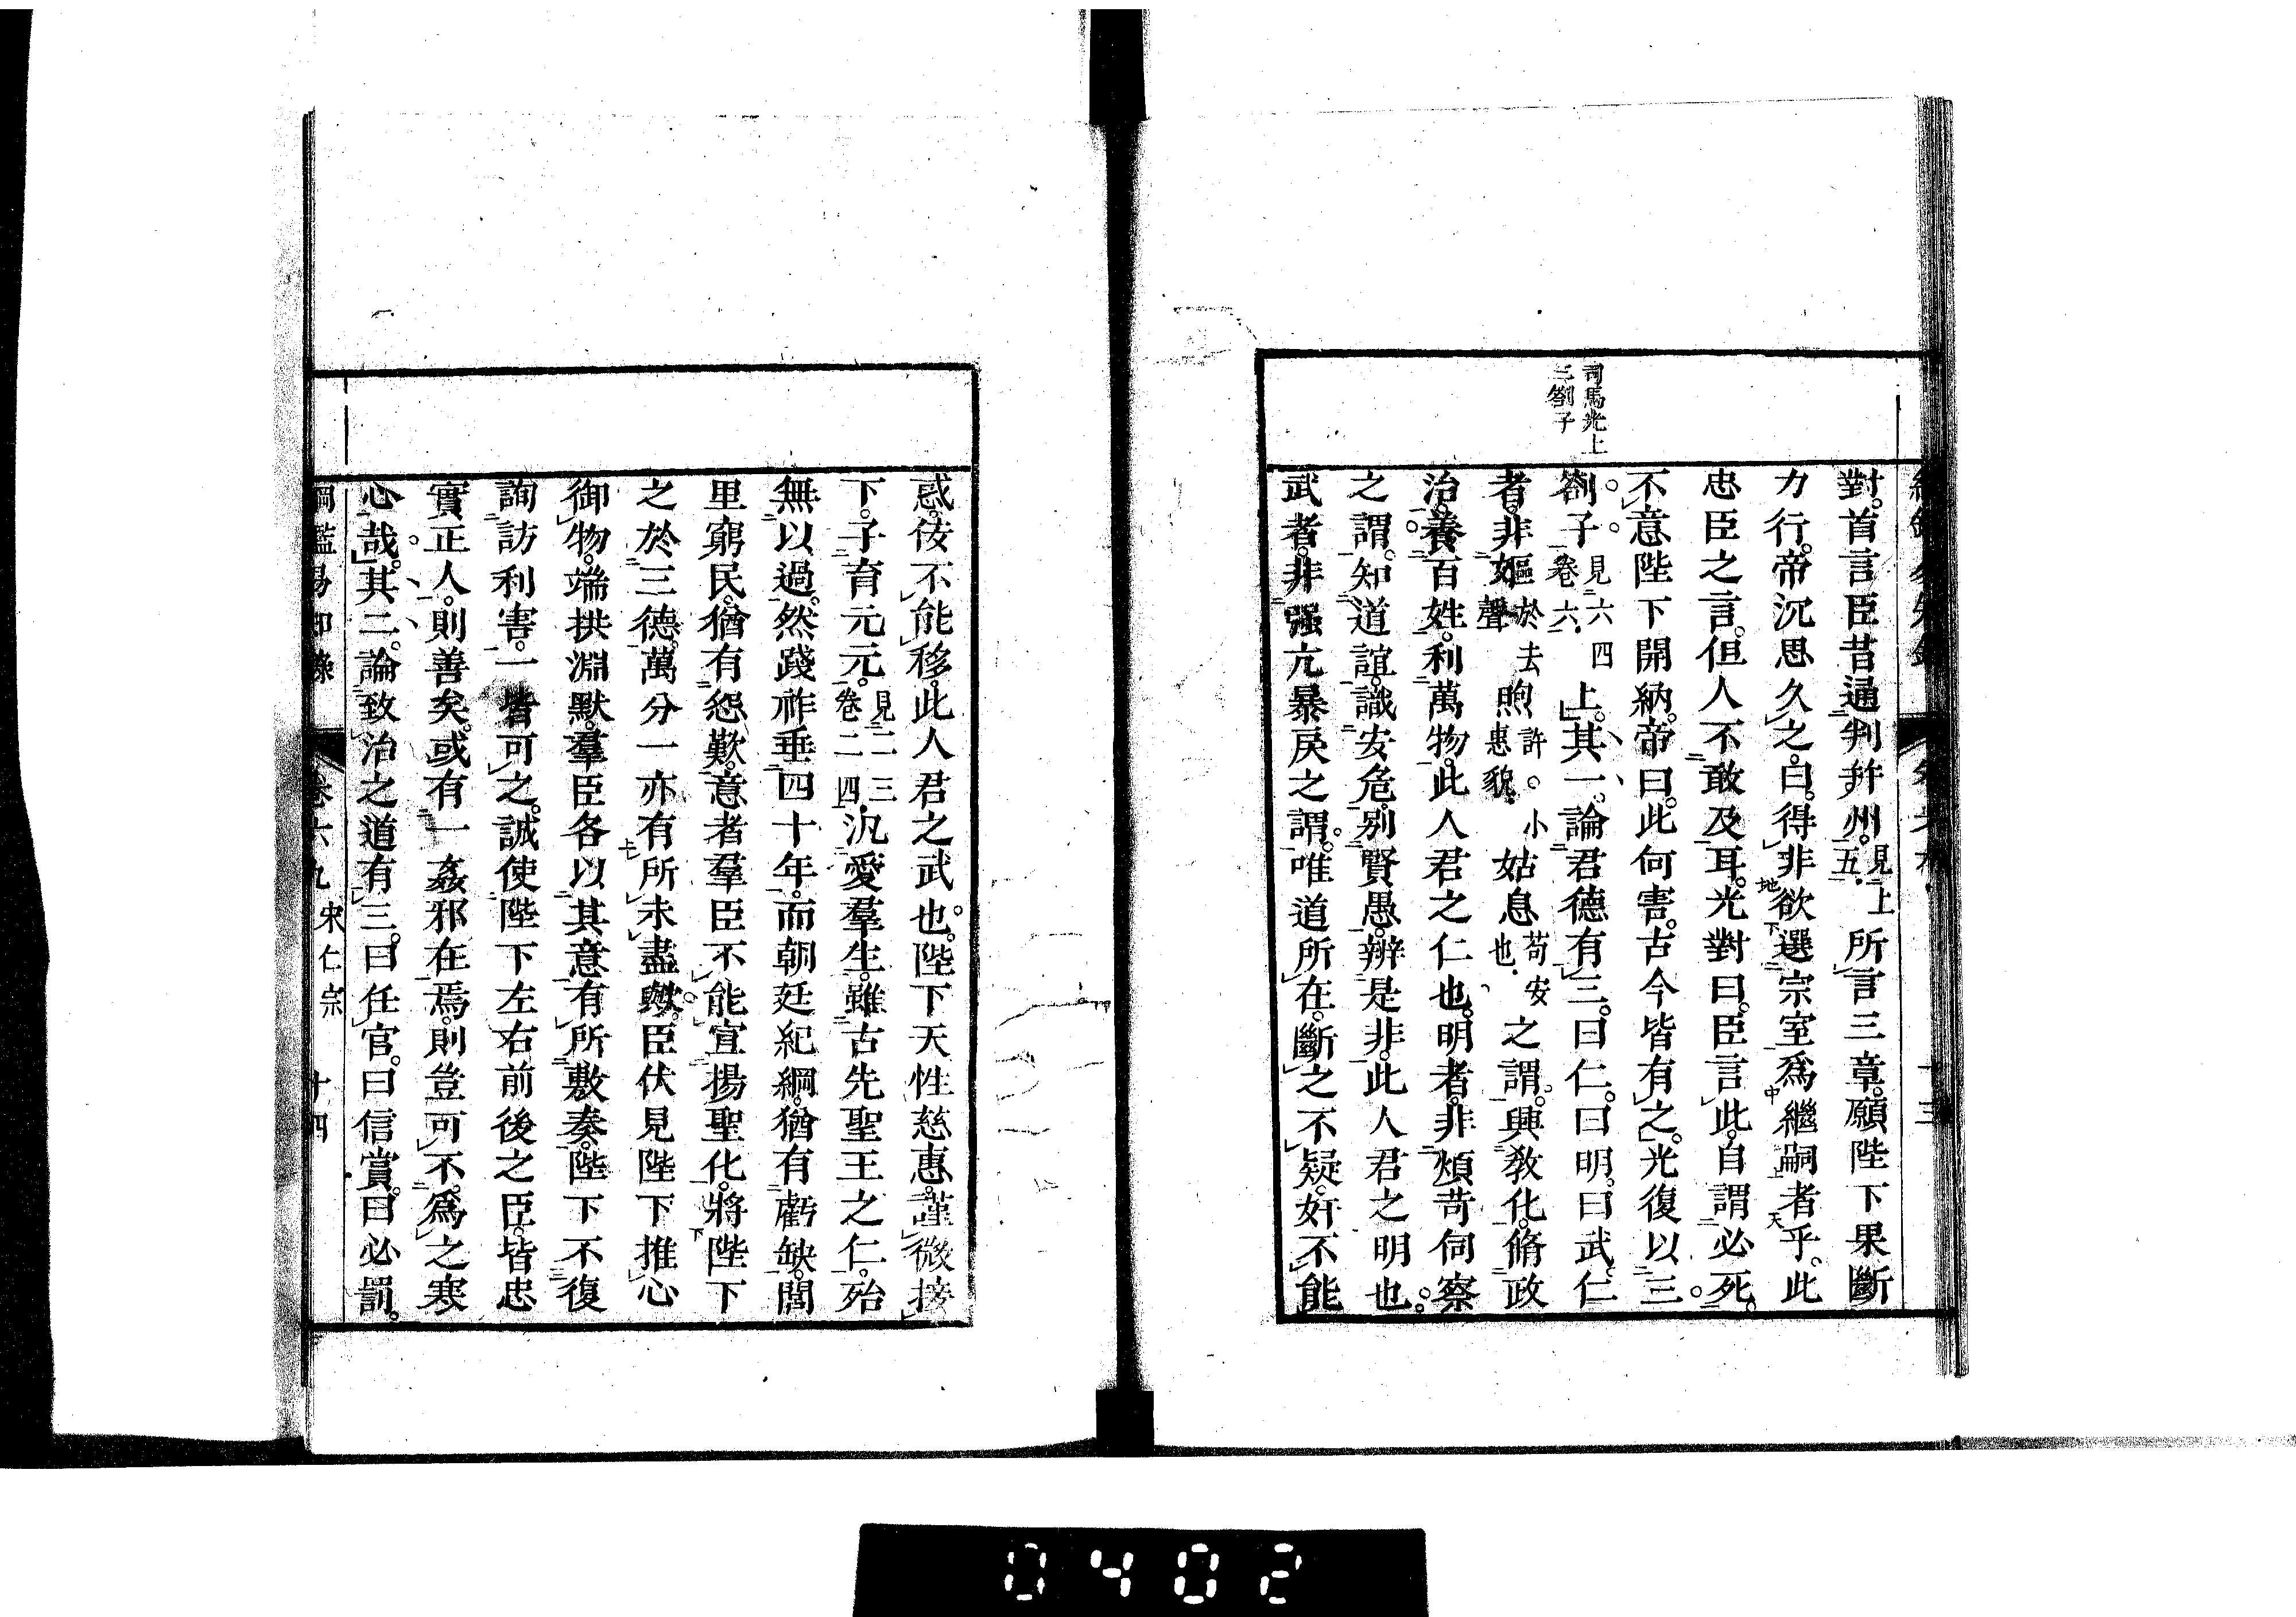 司馬光上
三劄子
對。首言臣昔通判幷州。見上五。所言三章。願陛下果斷
力行。帝沉思久之。曰。得非欲選宗室爲繼嗣者乎。此
忠臣之言。但人不敢及耳。光對曰。臣言此。自謂必死。
不意陛下開納。帝曰。此何害。古今皆有之。光復以三
劄子見六四卷六。上。其一。論君德有三。曰仁。曰明。曰武。仁
者。非嫗於去聲煦許。小惠貌。姑息苟安也。之謂。興敎化。脩政
治。養百姓。利萬物。此人君之仁也。明者。非煩苛伺察
之謂。知道誼。識安危。別賢愚。辨是非。此人君之明也。
武者。非强亢暴戾之謂。唯道所在。斷之不疑。奸不能
惑。佞不能移。此人君之武也。陛下天性慈惠。謹微接
下。子育元元。見二三卷二四。汎愛羣生。雖古先聖王之仁。殆
無以過。然踐祚垂四十年。而朝廷紀綱。猶有虧缺。閭
里窮民。猶有怨歎。意者羣臣不能宣揚聖化。將陛下
之於三德。萬分一亦有所未盡歟。臣伏見陛下推心
御物。端拱淵默。羣臣各以其意有所敷奏。陛下不復
詢訪利害。一皆可之。誠使陛下左右前後之臣。皆忠
實正人。則善矣。或有一姦邪在焉。則豈可不爲之寒
心哉。其二。論致治之道有三。曰任官。曰信賞。曰必罰。
綱鑑易知錄 卷六九 宋仁宗 十四